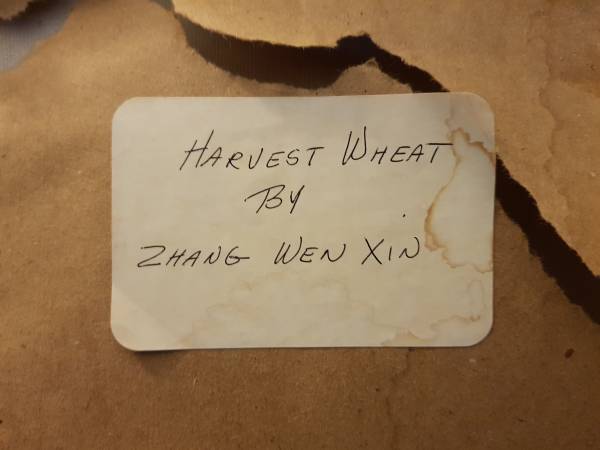 HARVEST WHEAT
BY
ZHANG WEN XIN